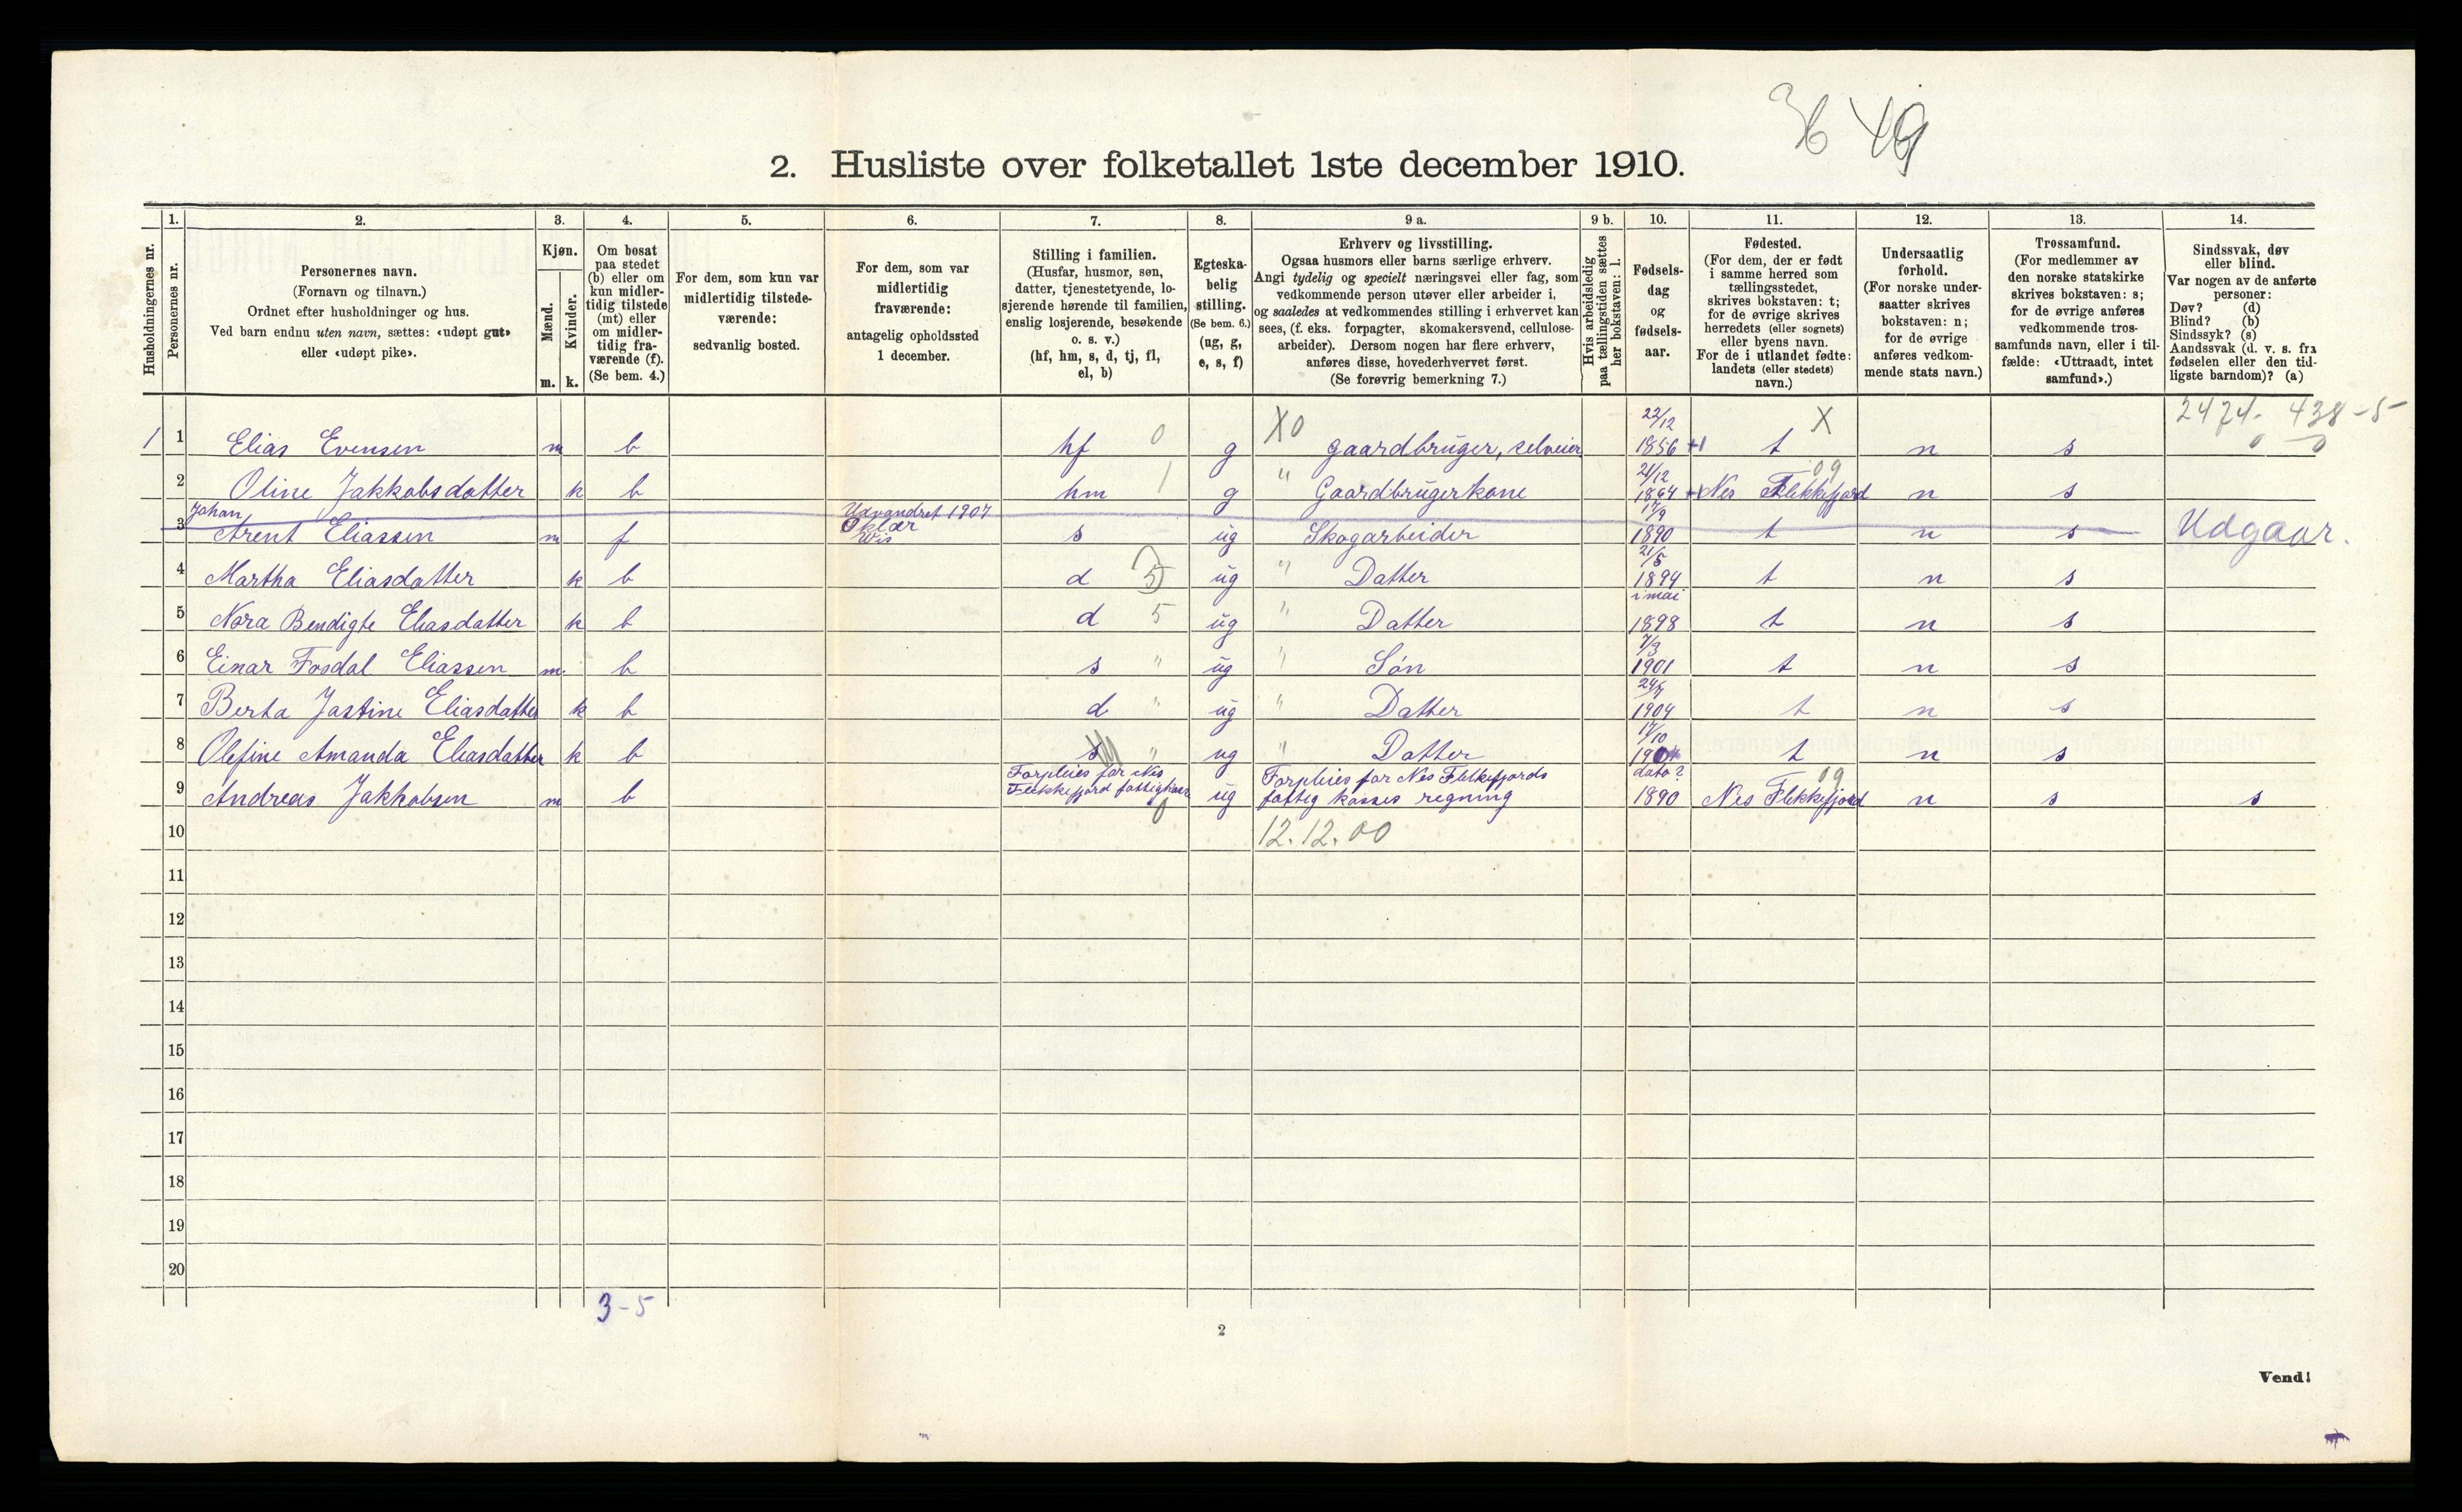 36 49
2. Husliste over folketallet 1ste december 1910.
1. 2. 3. 4. 5. 6. 7. 8. 9 a. 9 b. 10. 11. 12. 13. 14.
Husholdningernes nr.
Personernes nr.
Personernes navn.
(Fornavn og tilnavn.)
Ordnet efter husholdninger og hus.
Ved barn endnu uten navn, sættes: «udøpt gut»
eller «udøpt pike».
Kjøn.
Mænd.
Kvinder.
m. k.
Om bosat
paa stedet
(b) eller om
kun midler-
tidig tilstede
(mt) eller
om midler-
tidig fra-
værende (f).
(Se bem. 4.)
For dem, som kun var
midlertidig tilstede-
værende:
sedvanlig bosted.
For dem, som var
midlertidig
fraværende:
antagelig opholdssted
1 december.
Stilling i familien.
(Husfar, husmor, søn,
datter, tjenestetyende, lo-
sjerende hørende til familien,
enslig losjerende, besøkende
o. s. v.)
(hf, hm, s, d, tj, fl,
el, b)
Egteska-
belig
stilling.
(Se bem. 6.)
(ug, g,
e, s, f)
Erhverv og livsstilling.
Ogsaa husmors eller barns særlige erhverv.
Angi tydelig og specielt næringsvei eller fag, som
vedkommende person utøver eller arbeider i,
og saaledes at vedkommendes stilling i erhvervet kan
sees, (f. eks. forpagter, skomakersvend, cellulose-
arbeider). Dersom nogen har flere erhverv,
anføres disse, hovederhvervet først.
(Se forøvrig bemerkning 7.)
Hvis arbeidsledig
paa tællingstiden sættes
her bokstaven: l.
Fødsels-
dag
og
fødsels-
aar.
Fødested.
(For dem, der er født
i samme herred som
tællingsstedet,
skrives bokstaven: t;
for de øvrige skrives
herredets (eller sognets)
eller byens navn.
For de i utlandet fødte:
landets (eller stedets)
navn.)
Undersaatlig
forhold.
(For norske under-
saatter skrives
bokstaven: n;
for de øvrige
anføres vedkom-
mende stats navn.)
Trossamfund.
(For medlemmer av
den norske statskirke
skrives bokstaven: s;
for de øvrige anføres
vedkommende tros-
samfunds navn, eller i til-
fælde: «Uttraadt, intet
samfund».)
Sindssvak, døv
eller blind.
Var nogen av de anførte
personer:
Døv? (d)
Blind? (b)
Sindssyk? (s)
Aandssvak (d. v. s. fra
fødselen eller den tid-
ligste barndom)? (a)
22/12 X 2424- 438-5
1 1 Elias Evensen m b hf 0 g X0 gaardbruger, selveier 1856 +1 t n s 0 0
21/12 09
2 Oline Jakkobsdatter k b hm 1 g " Gaardbrugerkone 1864 +1 Nes Flekkefjord n s
Johan Udvandret 1907 17/9
3 Arent Eliassen m f Oklær Wis s ug Skogarbeider 1890 t n s Udgaar.
21/5
4 Martha Eliasdatter k b d 5 ug " Datter 1894 t n s
i mai
5 Nora Bendigte Eliasdatter k b d 5 ug " Datter 1898 t n s
7/3
6 Einar Fosdal Eliassen m. b s " ug " Søn 1901 t n s
24/7
7 Berta Jastine Eliasdatter k b d " ug " Datter 1904 t n s
17/10
8 Olefine Amanda Eliasdatter k b s " ug " Datter t n s
Forpleies for Nes Forpleies for Nes Flekkefjords dato? 09
9 Andreas Jakkobsen m b Flekkefjord fattigkasse 0 ug fattig kasses regning 1890 Nes Flekkefjord n s s
10 12.12.00
11
12
13
14
15
16
17
18
19
20
3-5
2
Vend!